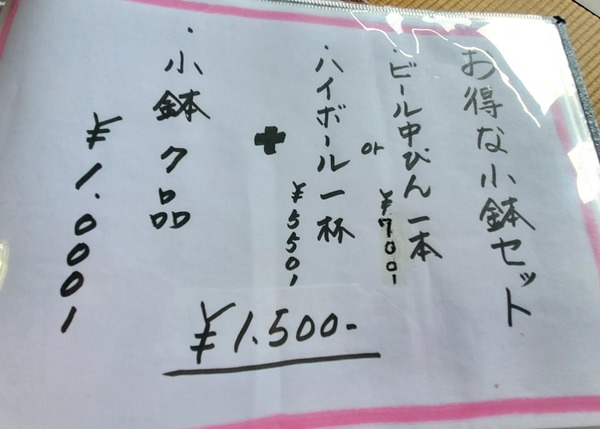 お得な小鉢セット
・ビール中びん一本
¥700-
or
・ハイボール一杯
¥550-
+
・小鉢 7品
¥1.000-
¥1.500-